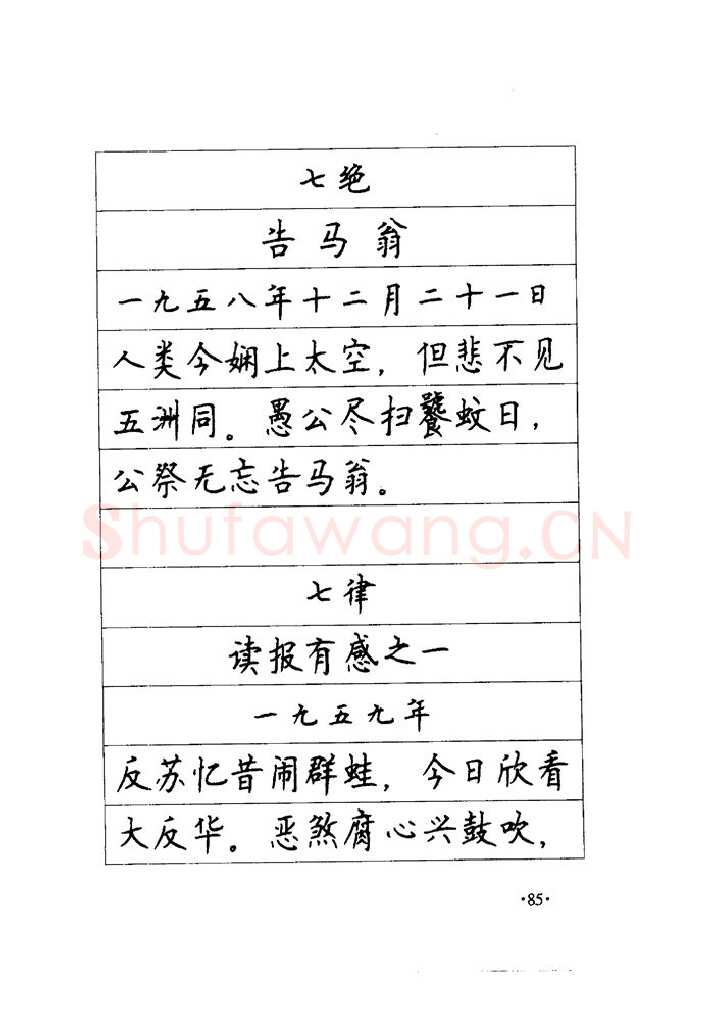 七绝
告马翁
一九五八年十二月二十一日
人类今娴上太空，但悲不见
五洲同。愚公尽扫饕蚊日，
公祭无忘告马翁。
Shufawang.CN
七律
读报有感之一
一九五九年
反苏忆昔闹群蛙，今日欣看
大反华。恶煞腐心兴鼓吹，
·85·